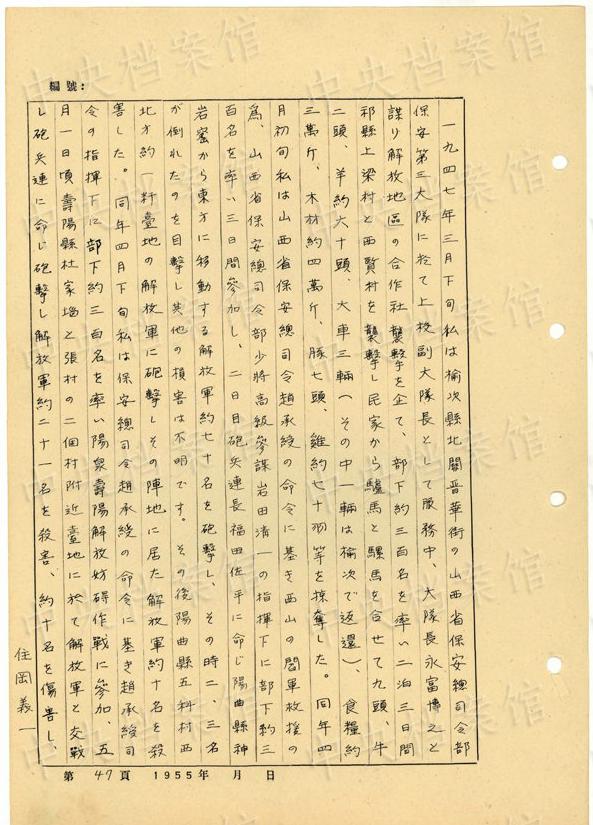 編號:
一九四七年三月下旬私は楡次縣北関晋華街の山西省保安總司令部
保安第三大隊に於て上校副大隊長として服務中、大隊長永富博之と
謀り解放地區の合作社襲撃を企て、部下約三百名を率い二泊三日間
祁縣上梁村と西賢村を襲撃し民家から驢馬と騾馬を合せて九頭、牛
二頭、羊約六十頭、大車三輛(その中一輛は楡次で返還)、食糧約
三萬斤、木材約四萬斤、豚七頭、雞約七十羽等を掠奪した。同年四
月初旬私は山西省保安總司令趙承綬の命令に基き西山の閻軍救援の
爲、山西省保安總司令部少將高級参謀岩田清一の指揮下に部下約三
百名を率い三日間参加し、二日目砲兵連長福田佐平に命じ陽曲縣神
岩窰から東方に移動する解放軍約七十名を砲撃し、その時二、三名
が倒れたのを目撃し其他の損害は不明です。その後陽曲縣五科村西
北方約一粁臺地の解放軍に砲撃しその陣地に居た解放軍約十名を殺
害した。同年四月下旬私は保安總司令趙承綬の命令に基き趙承綬司
令の指揮下に部下約三百名を率い陽泉壽陽解放妨碍作戰に参加、五
月一日頃壽陽縣杜家垴と張村の二個村附近臺地に於て解放軍と交戰
し砲兵連に命じ砲撃し解放軍約二十一名を殺害、約十名を傷害し、
住岡義一
第 47 頁 1955年 月 日
中央档案馆